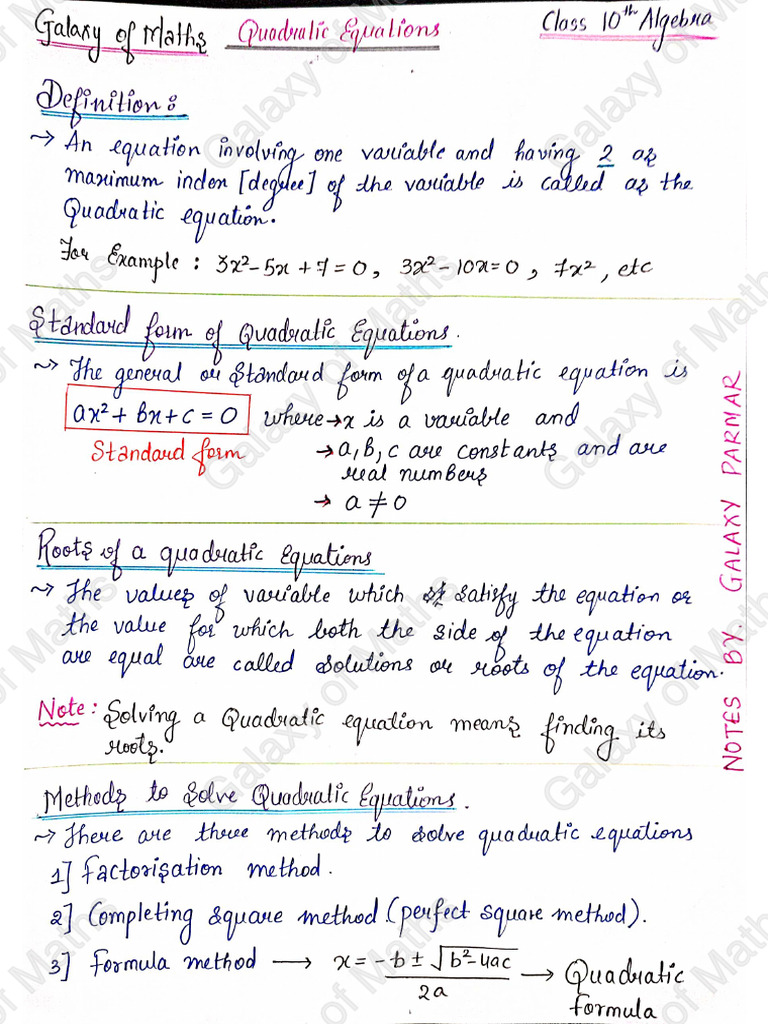 Galaxy of Maths Quadratic Equations Class 10th Algebra
Definition:
~> An equation involving one variable and having 2 as
maximum index [degree] of the variable is called as the
Quadratic equation.
For Example : 3x² - 5x + 7 = 0 , 3x² - 10x = 0 , 7x² , etc
Standard form of Quadratic Equations.
~> The general or Standard form of a quadratic equation is
ax² + bx + c = 0 where → x is a variable and
Standard form → a, b, c are constants and are
real numbers
→ a ≠ 0
Roots of a quadratic Equations
~> The values of variable which satisfy the equation or
the value for which both the side of the equation
are equal are called solutions or roots of the equation.
Note : Solving a Quadratic equation means finding its
roots.
Methods to Solve Quadratic Equations.
~> There are three methods to solve quadratic equations
1] Factorisation method.
2] Completing square method (perfect square method).
3] Formula method → x = -b ± √b² - 4ac / 2a → Quadratic
formula
NOTES BY. GALAXY PARMAR
Galaxy of Maths